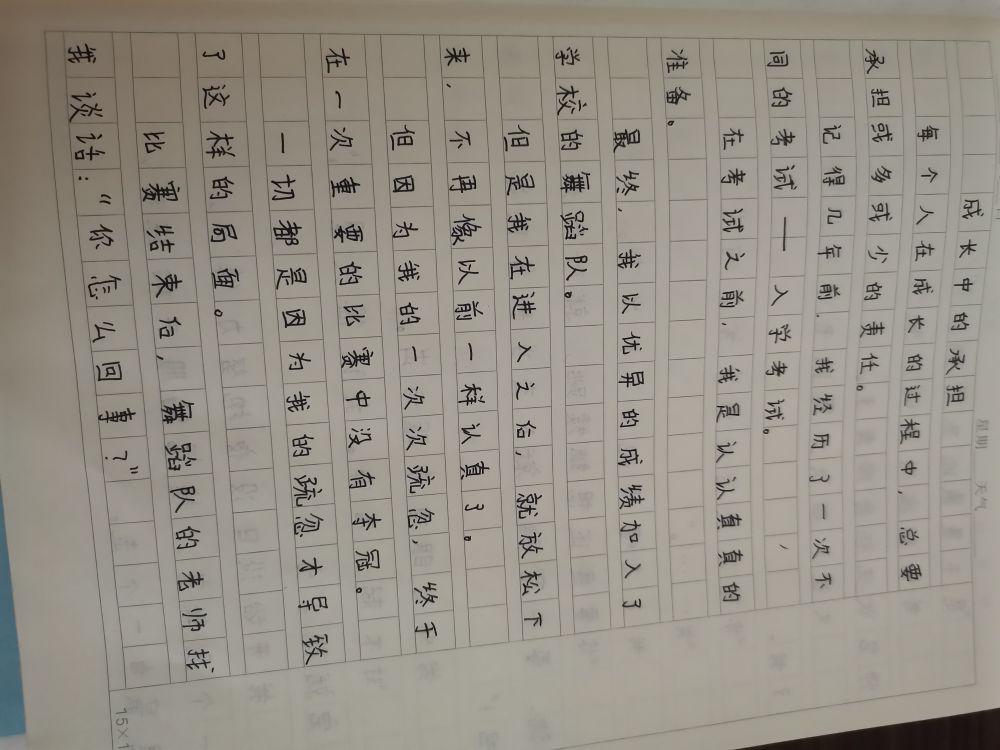 星期 天气
成长中的承担
每个人在成长的过程中,总要
承担或多或少的责任。
记得几年前,我经历了一次不
同的考试——入学考试。
在考试之前,我是认认真真的
准备。
最终,我以优异的成绩加入了
学校的舞蹈队。
但是我在进入之后,就放松下
来,不再像以前一样认真了。
但因为我的一次次疏忽,终于
在一次重要的比赛中没有夺冠。
一切都是因为我的疏忽才导致
了这样的局面。
比赛结束后,舞蹈队的老师找
我谈话:“你怎么回事?”